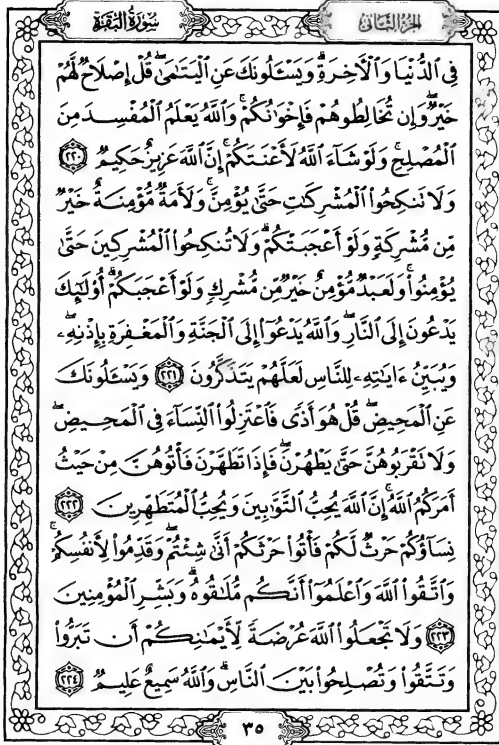 الجزء الثاني
سورة البقرة
فِى ٱلدُّنْيَا وَٱلْأَخِرَةِ وَيَسْـَٔلُونَكَ عَنِ ٱلْيَتَـٰمَىٰ قُلْ إِصْلَاحٌ لَّهُمْ
خَيْرٌ وَإِن تُخَالِطُوهُمْ فَإِخْوَٰنُكُمْ وَٱللَّهُ يَعْلَمُ ٱلْمُفْسِدَ مِنَ
ٱلْمُصْلِحِ وَلَوْ شَآءَ ٱللَّهُ لَأَعْنَتَكُمْ إِنَّ ٱللَّهَ عَزِيزٌ حَكِيمٌ ٢٢٠
وَلَا تَنكِحُوا۟ ٱلْمُشْرِكَـٰتِ حَتَّىٰ يُؤْمِنَّ وَلَأَمَةٌ مُّؤْمِنَةٌ خَيْرٌ
مِّن مُّشْرِكَةٍ وَلَوْ أَعْجَبَتْكُمْ وَلَا تُنكِحُوا۟ ٱلْمُشْرِكِينَ حَتَّىٰ
يُؤْمِنُوا۟ وَلَعَبْدٌ مُّؤْمِنٌ خَيْرٌ مِّن مُّشْرِكٍ وَلَوْ أَعْجَبَكُمْ أُو۟لَـٰٓئِكَ
يَدْعُونَ إِلَى ٱلنَّارِ وَٱللَّهُ يَدْعُوٓا۟ إِلَى ٱلْجَنَّةِ وَٱلْمَغْفِرَةِ بِإِذْنِهِۦ
وَيُبَيِّنُ ءَايَـٰتِهِۦ لِلنَّاسِ لَعَلَّهُمْ يَتَذَكَّرُونَ ٢٢١ وَيَسْـَٔلُونَكَ
عَنِ ٱلْمَحِيضِ قُلْ هُوَ أَذًى فَٱعْتَزِلُوا۟ ٱلنِّسَآءَ فِى ٱلْمَحِيضِ
وَلَا تَقْرَبُوهُنَّ حَتَّىٰ يَطْهُرْنَ فَإِذَا تَطَهَّرْنَ فَأْتُوهُنَّ مِنْ حَيْثُ
أَمَرَكُمُ ٱللَّهُ إِنَّ ٱللَّهَ يُحِبُّ ٱلتَّوَّٰبِينَ وَيُحِبُّ ٱلْمُتَطَهِّرِينَ ٢٢٢
نِسَآؤُكُمْ حَرْثٌ لَّكُمْ فَأْتُوا۟ حَرْثَكُمْ أَنَّىٰ شِئْتُمْ وَقَدِّمُوا۟ لِأَنفُسِكُمْ
وَٱتَّقُوا۟ ٱللَّهَ وَٱعْلَمُوٓا۟ أَنَّكُم مُّلَـٰقُوهُ وَبَشِّرِ ٱلْمُؤْمِنِينَ
٢٢٣ وَلَا تَجْعَلُوا۟ ٱللَّهَ عُرْضَةً لِّأَيْمَـٰنِكُمْ أَن تَبَرُّوا۟
وَتَتَّقُوا۟ وَتُصْلِحُوا۟ بَيْنَ ٱلنَّاسِ وَٱللَّهُ سَمِيعٌ عَلِيمٌ ٢٢٤
٣٥